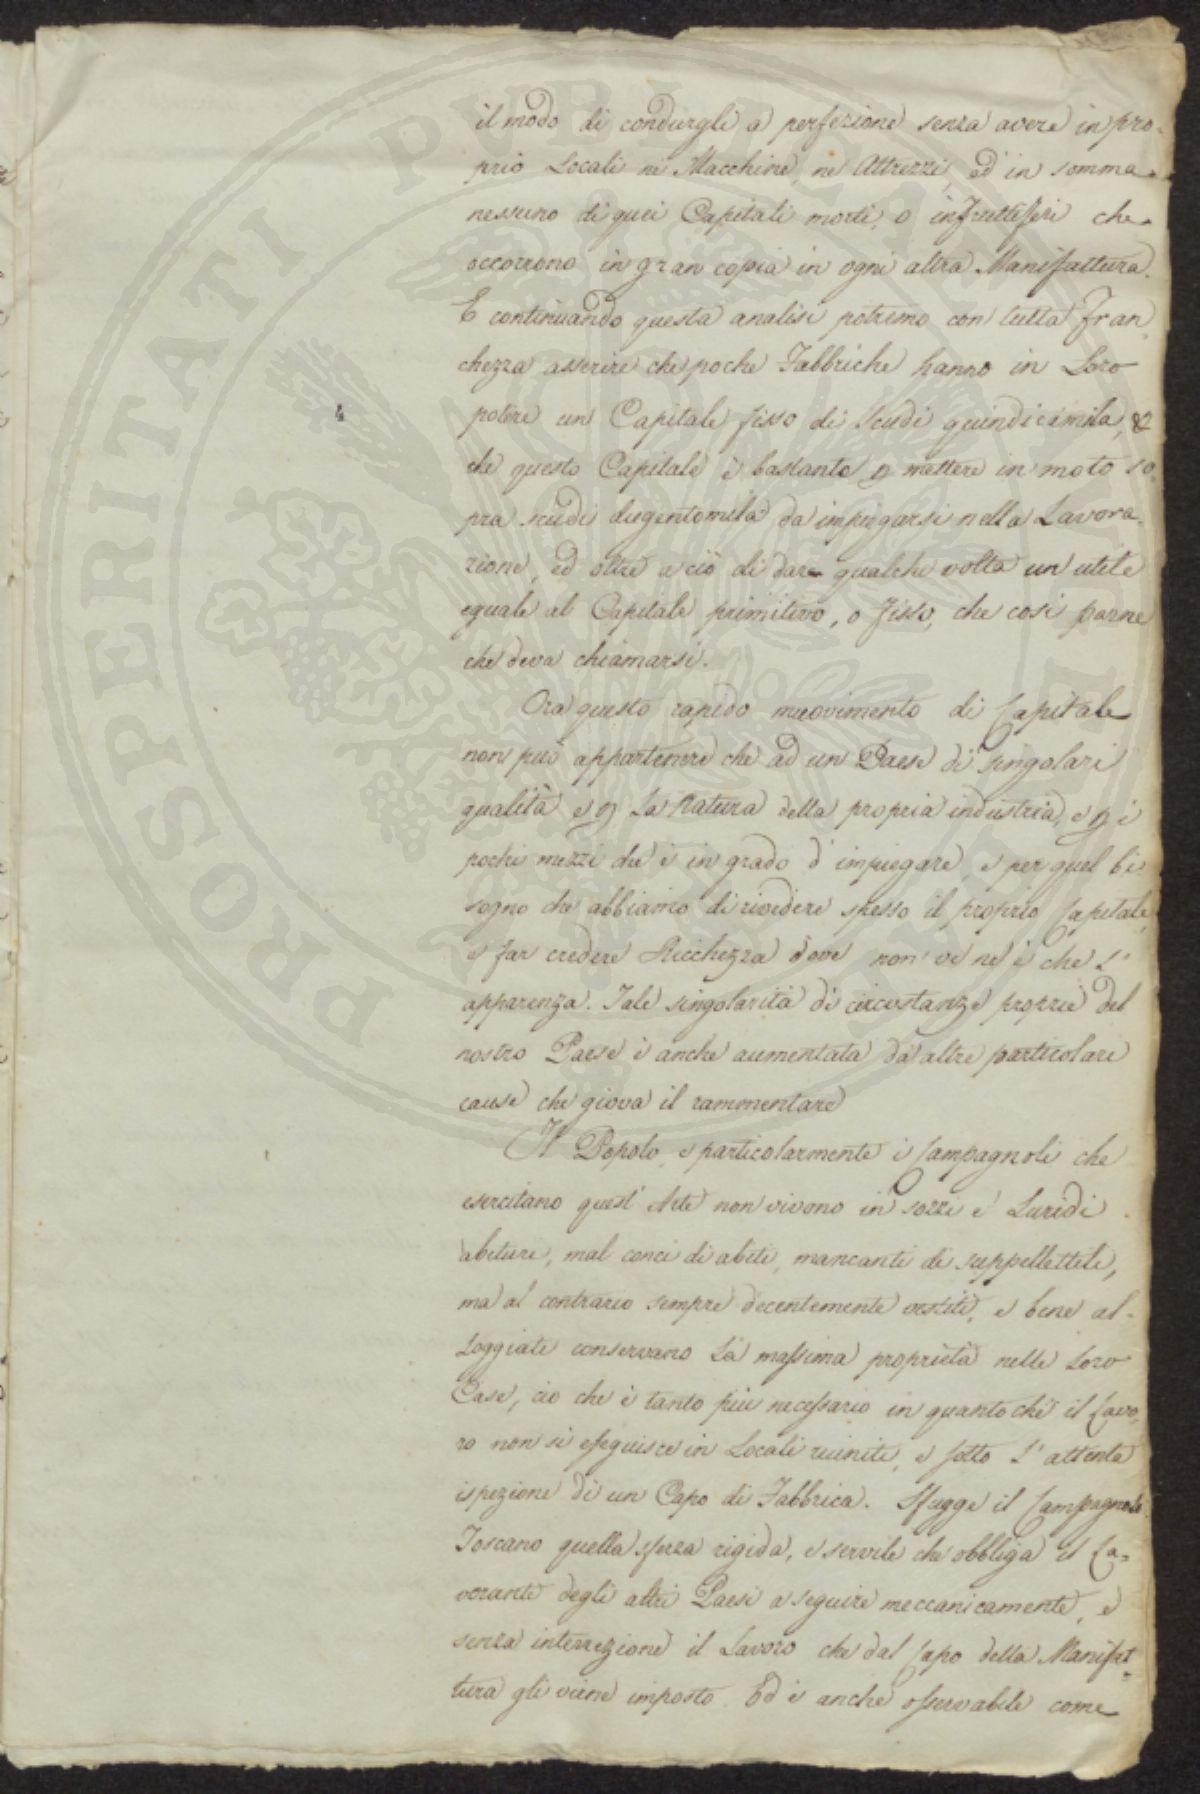 PROSPERITATI PUBLICAE AUGENDAE
il modo di condurgli a perfezione senza avere in pro-
prio Locali nè Macchine, ne Attrezzi, ed in somma
nessuno di quei Capitali morti, o infruttiferi che
occorrono in gran copia in ogni altra Manifattura.
E continuando questa analisi potremo con tutta fran
chezza asserire che poche Fabbriche hanno in Loro
potere un Capitale fisso di Scudi quindicimila, &
che questo Capitale è bastante p mettere in moto so-
pra scudi dugentomila da impiegarsi nella Lavora-
zione, ed oltre a ciò di dare qualche volta un utile
eguale al Capitale primitivo, o fisso, che così parne
che deva chiamarsi.
Ora questo rapido muovimento di Capitale
non può appartenere che ad un Paese di singolari
qualità e p La Natura della propria industria, e p i
pochi mezzi che è in grado d'impiegare, e per quel bi
sogno che abbiamo di rivedere spesso il proprio Capitale,
e far credere Ricchezza dove non ve ne è che l'
apparenza. Tale singolarità di circostanze proprie del
nostro Paese è anche aumentata da altre particolari
cause che giova il rammentare
Il Popolo, e particolarmente i Campagnoli che
esercitano quest'Arte non vivono in sozzi e Luridi
abituri, mal conci di abiti, mancanti di suppellettili,
ma al contrario sempre decentemente vestiti, e bene al-
Loggiati conservano La massima proprietà nelle Loro
Case, ciò che è tanto più necessario in quanto chè il Lavo
ro non si eseguisce in Locali riuniti, e sotto l'attenta
ispezione di un Capo di Fabbrica. Sfugge il Campagnolo
Toscano quella sferza rigida, e servile che obbliga il La=
vorante degli altri Paesi a seguire meccanicamente, e
senza interrezione il Lavoro che dal Capo della Manifat-
tura gli viene imposto. Ed è anche osservabile come